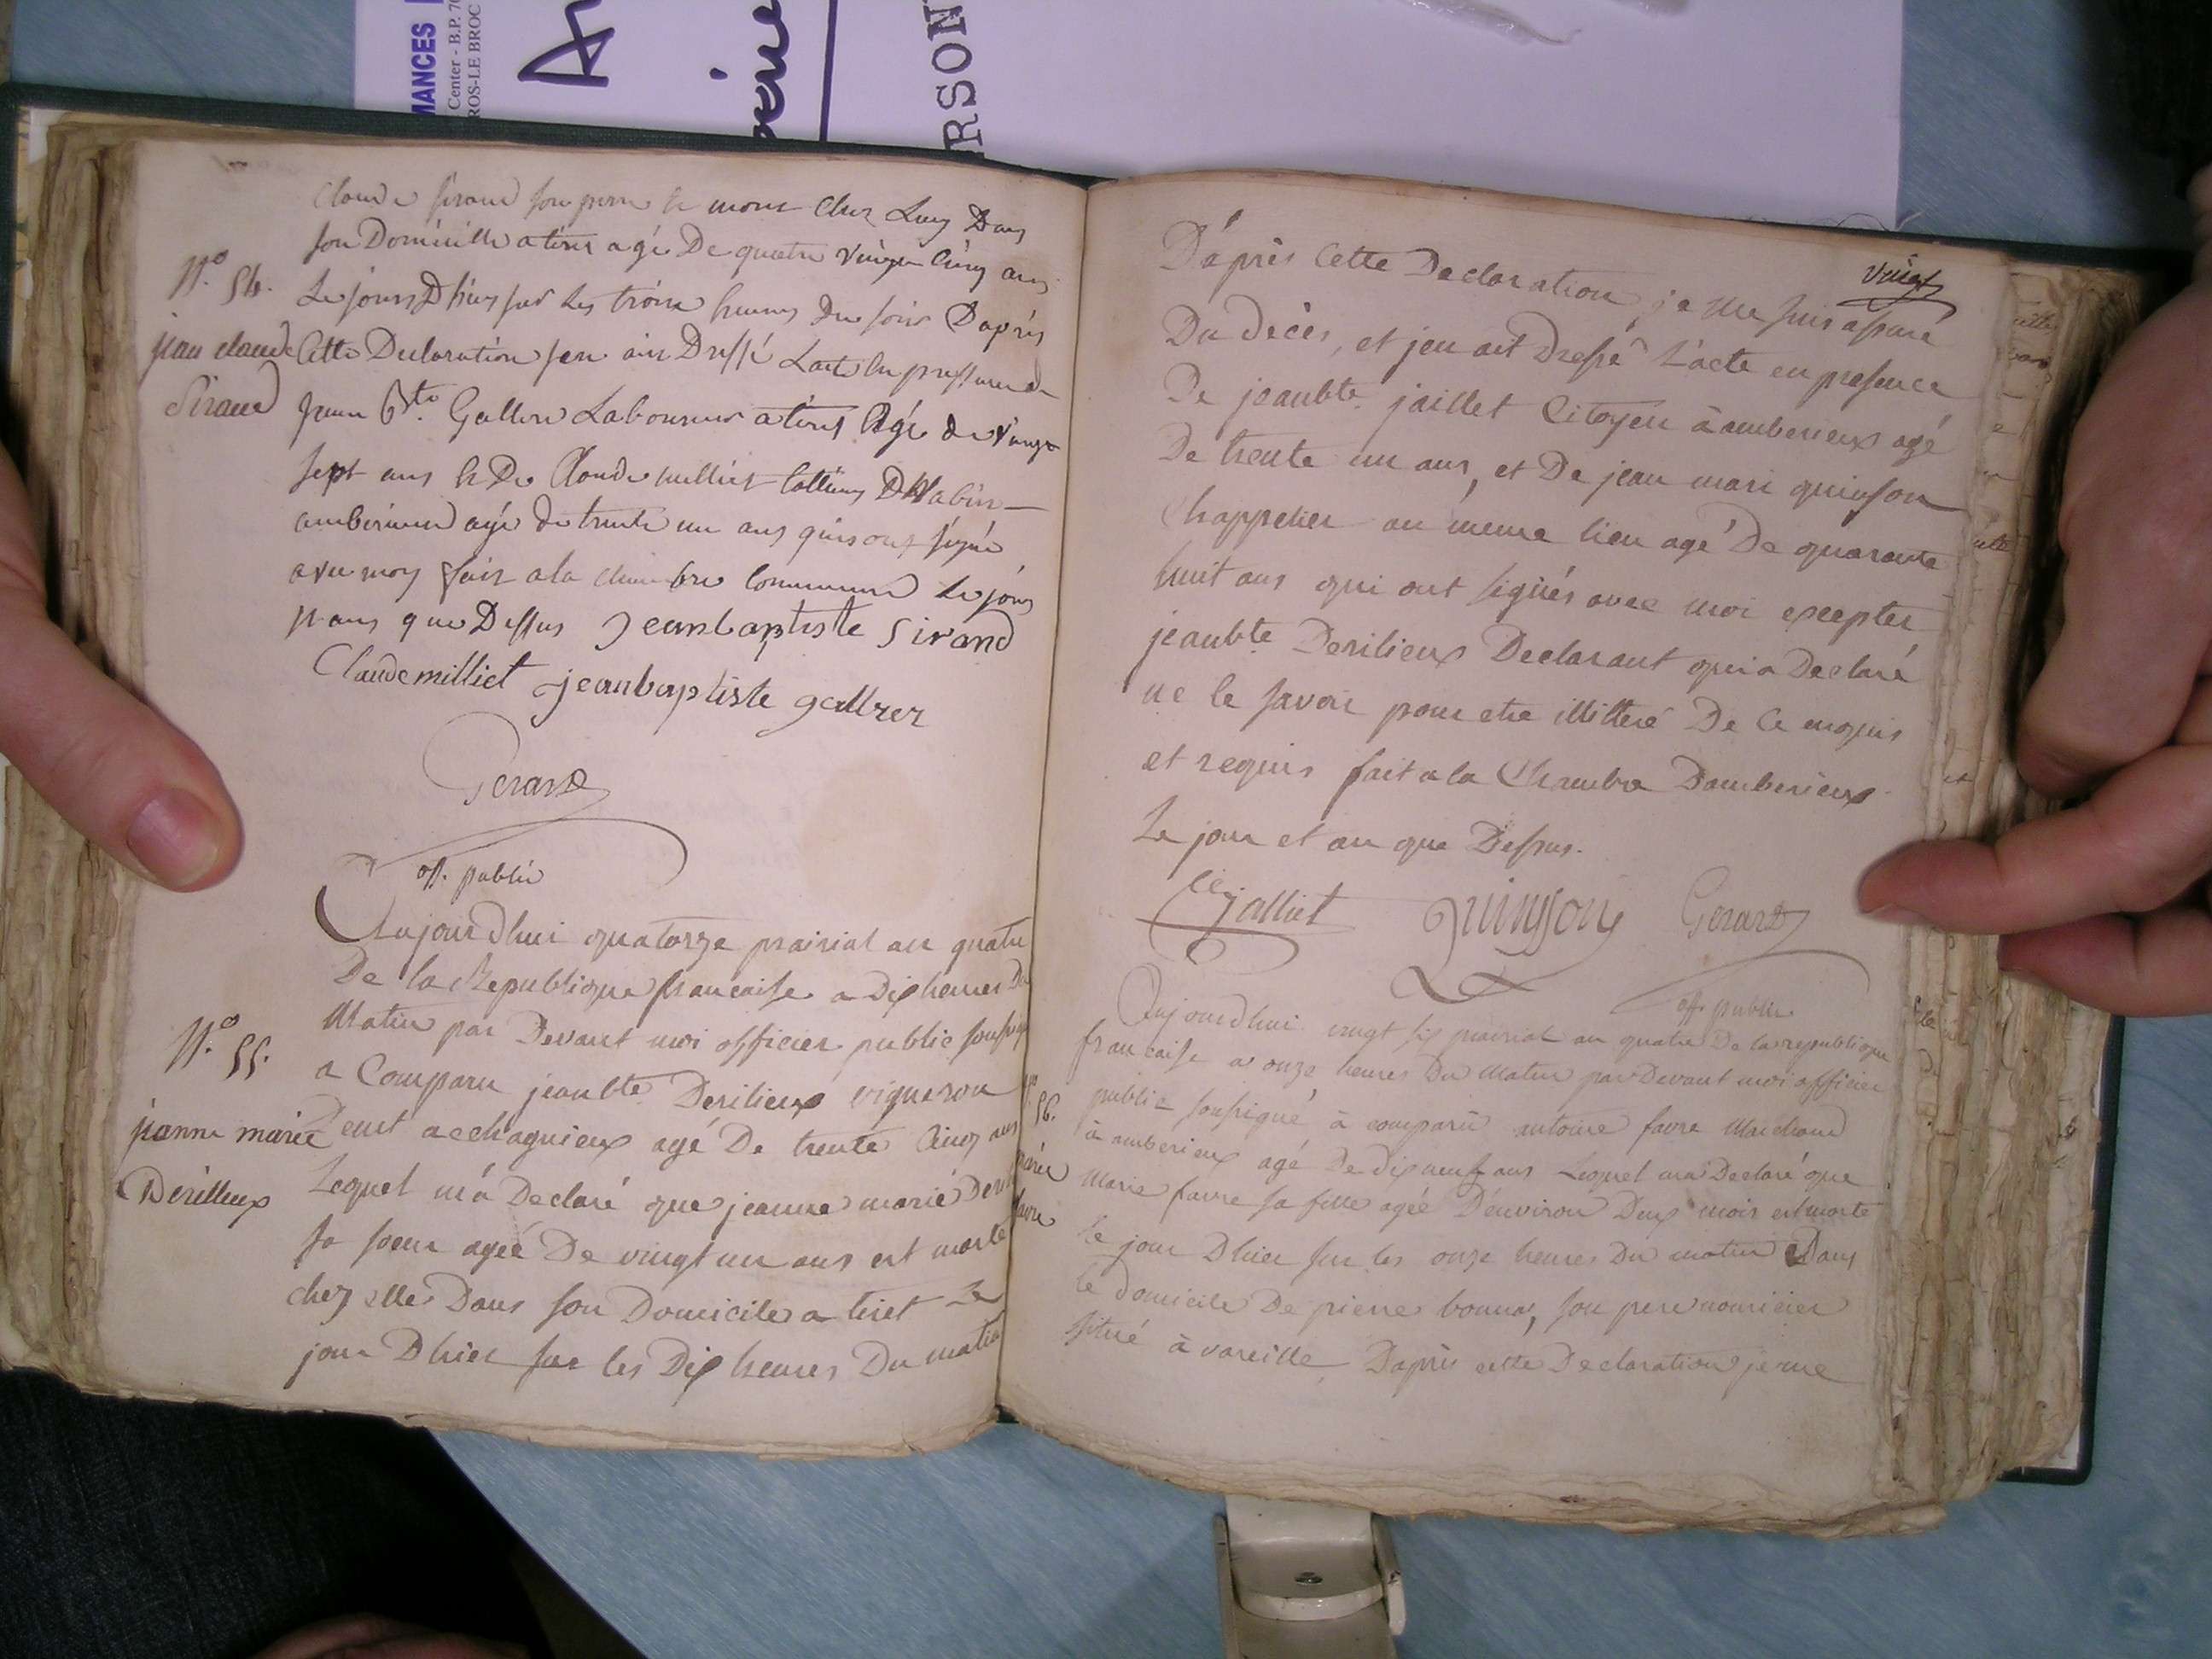 MANCES
Center - B.P. 70
ROS-LE BROC
RSON
Claude Sirand son pere est mort chez Luy Dans
son Domicille a tiret agé De quatre vingt Cinq ans
Le jour D'hier sur les trois heures du soir D'aprés
Cette Declaration jen ais Dressé Lacte En presence de
Jean Bte. Gallrer Laboureur a tiret Agé de vingt
sept ans & De Claude milliet
amberieux agé de trente un ans qui ont signé
avec moy fait a la chambre Commune Le jour
& ans que Dessus jeanbaptiste Sirand
Claude milliet jeanbaptiste gallrer
Gerard
off. public
N.o 54.
jean claude
Siraud
Aujourdhui quatorze prairial an quatre
De la Republique francaise a Dix heures Du
Matin par Devant moi officier public soussigné
a Comparu jeanbte Derilieux vigneron
Demt a echagnieux agé De trente Cinq ans
Lequel m'a Declaré que jeanne marie Deril
sa soeur agée De vingt un ans est morte
chez elle Dans son Domicile a tiret Le
jour D'hier sur les Dix heures Du matin
N.o 55.
jeanne marie
Derilleux
vingt
D'après Cette Declaration je me suis assuré
Du decès, et jen ait Dressé L'acte en presence
De jeanbte. jaillet Citoyen à amberieux agé
De trente un ans, et De jean mari quinson
Chappelier au meme lieu agé De quarante
huit ans qui ont signés avec moi excepter
jeanbte Derilieux Declarant qui a Declaré
ne le savoir pour etre illitteré De Ce enquis
et requis fait a la Chambre D'amberieux
Le jour et an que Dessus.
Jalliet Quinsson Gerard
off. public
Aujourdhui vingt six prairial an quatre De la republique
francaise a onze heures Du Matin par Devant moi officier
public soussigné à comparu antoine favre Marchand
à amberieux agé De dix neuf ans Lequel ma Declaré que
Marie favre sa fille agée D'environ Deux mois est morte
le jour D'hier sur les onze heures Du matin Dans
le domicile De pierre bonna, son pere nouricier
situé à vareille D'après cette Declaration je me
N.o 56.
marie
favre